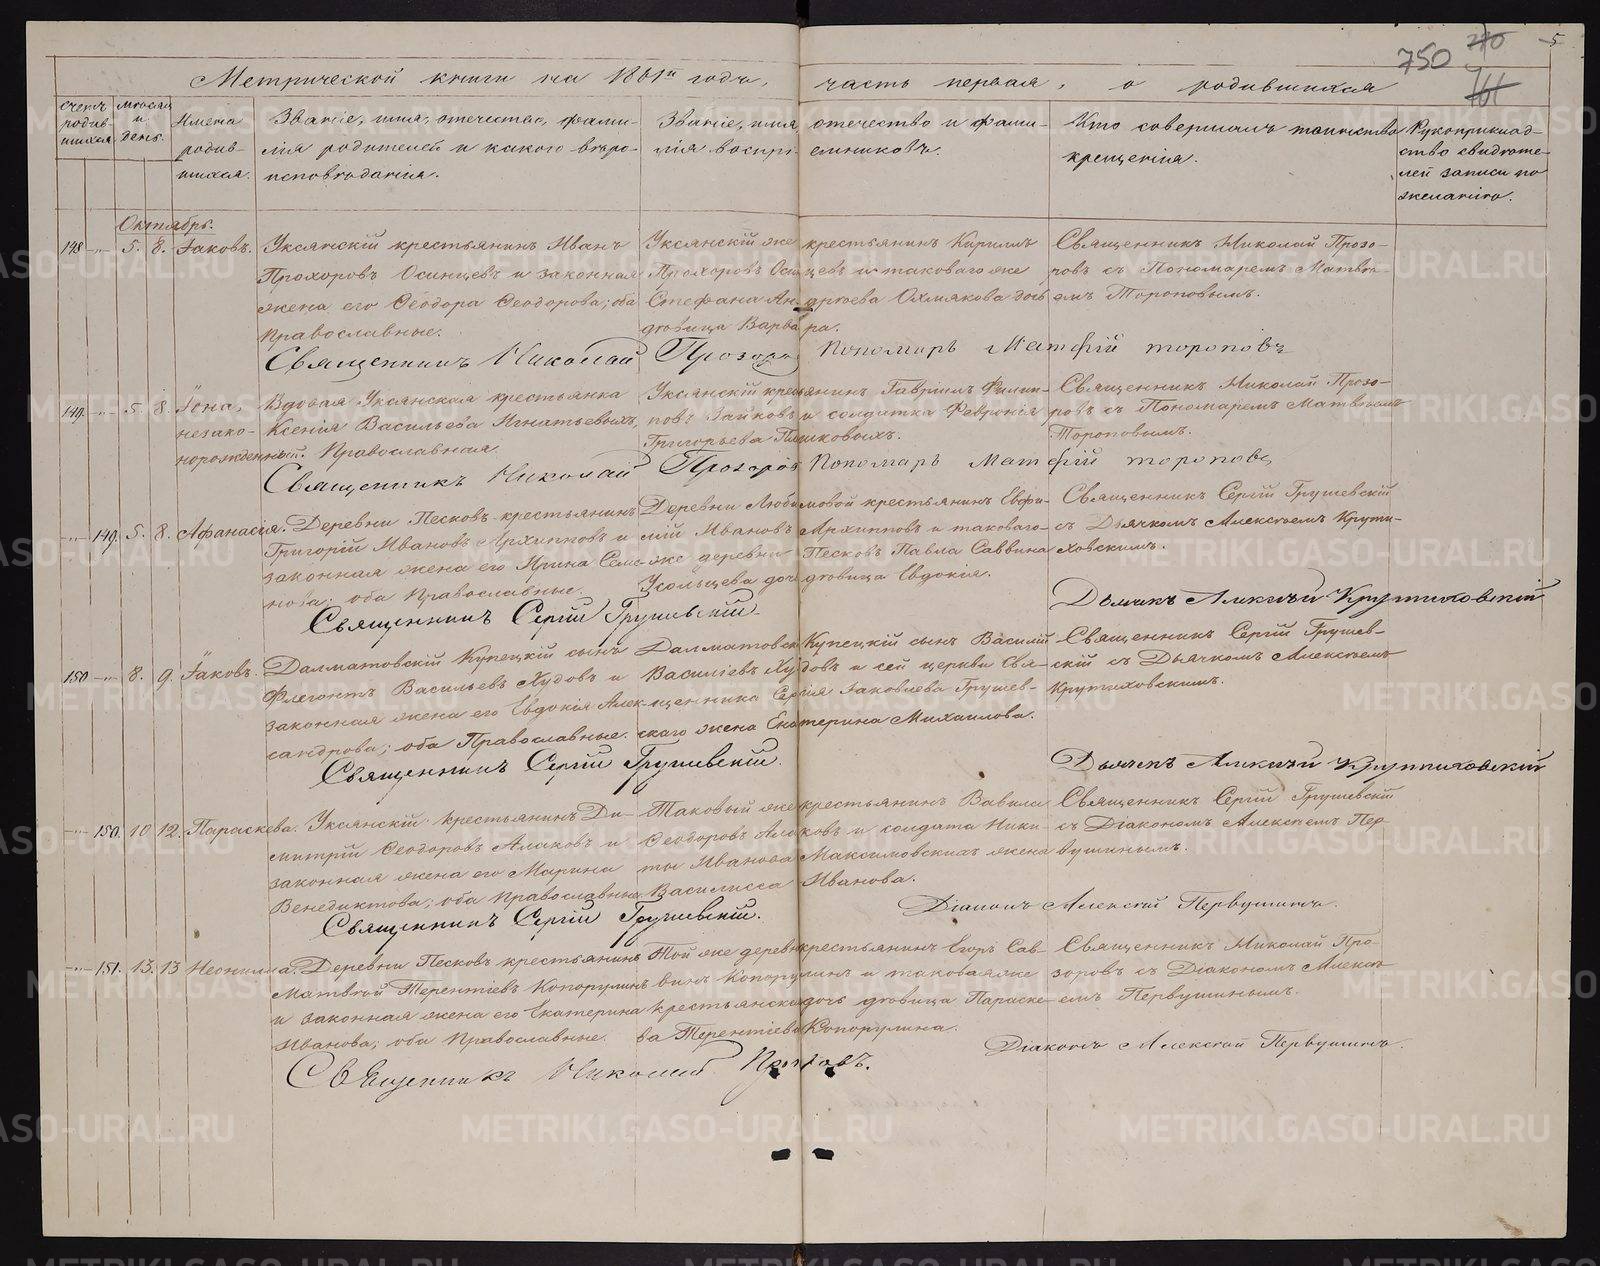 750 270 5
761
Метрической книги на 1861й годъ, часть первая, о родившихся
Счетъ родив-шихся.
Мѣсяцъ и день.
Имена родив-шихся.
Званіе, имя, отечество, фами-
лія родителей и какого вѣро-
исповѣданія.
Званіе, имя отечество и фами-
лія воспрі-емниковъ.
Кто совершалъ таинство
крещенія.
Рукоприклад-
ство свидѣте-
лей записи по
желанію.
Октябрь.
148 —"— 5. 8. Іаковъ.
Уксянскій крестьянинъ Иванъ
Прохоровъ Осинцевъ и законная
жена его Ѳеодора Ѳеодорова; оба
Православные.
Уксянскій же крестьянинъ Кириллъ
Прохоровъ Осинцевъ и таковаго же
Стефана Андреева Охлякова дочь
дѣвица Варвара.
Священникъ Николай Прозо-
ровъ съ Пономаремъ Матвѣе-
емъ Тороповымъ.
Священникъ Николай Прозоровъ Пономарь Матфій Тороповъ
149. —"— 5. 8. Іона, незако-
норожденный.
Вдовая Уксянская крестьянка
Ксенія Васильева Игнатьевыхъ,
Православная.
Уксянскій крестьянинъ Гавріилъ Филип-
повъ Зайковъ и солдатка Февронія
Григорьева Пашковыхъ.
Священникъ Николай Прозо-
ровъ съ Пономаремъ Матвѣемъ
Тороповымъ.
Священникъ Николай Прозоровъ Пономарь Матфій Тороповъ
—"— 149. 5. 8. Афанасія.
Деревни Песковъ крестьянинъ
Григорій Ивановъ Архиповъ и
законная жена его Ирина Семе-
нова; оба Православные.
Деревни Любимовой крестьянинъ Евфи-
мій Ивановъ Архиповъ и таковаго-
же деревни Песковъ Павла Саввина
Усольцева дочь дѣвица Евдокія.
Священникъ Сергій Грушевскій
съ Дьячкомъ Алексѣемъ Крути-
ховскимъ.
Священникъ Сергій Грушевскій. Дьячекъ Алексѣй Крутиховскій
150 —"— 8. 9. Іаковъ.
Далматовскій Купецкій сынъ
Флегонтъ Васильевъ Худовъ и
законная жена его Евдокія Алек-
сандрова; оба Православные.
Далматовскій Купецкій сынъ Василій
Василіевъ Худовъ и сей церкви Свя-
щенника Сергія Іаковлева Грушев-
скаго жена Екатерина Михаилова.
Священникъ Сергій Грушев-
скій съ Дьячкомъ Алексѣемъ
Крутиховскимъ.
Священникъ Сергій Грушевскій. Дьячекъ Алексѣй Крутиховскій
—"— 150. 10 12. Параскева.
Уксянскій крестьянинъ Ди-
митрій Ѳеодоровъ Алаковъ и
законная жена его Марина
Венедиктова; оба Православные.
Таковый же крестьянинъ Вавила
Ѳеодоровъ Алаковъ и солдата Ники-
ты Иванова Максимовскихъ жена
Василисса Иванова.
Священникъ Сергій Грушевскій
съ Діакономъ Алексѣемъ Пер-
вушинымъ.
Священникъ Сергій Грушевскій. Діаконъ Алексѣй Первушинъ.
—"— 151. 13. 13 Неонилла.
Деревни Песковъ крестьянинъ
Матвѣй Терентіевъ Копорулинъ
и законная жена его Екатерина
Иванова; оба Православные.
Той же деревни крестьянинъ Егоръ Сав-
винъ Копорулинъ и таковая же
крестьянская дочь дѣвица Параске-
ва Терентіева Копорулина.
Священникъ Николай Про-
зоровъ съ Діакономъ Алексѣ-
емъ Первушинымъ.
Священникъ Николай Прозоровъ. Діаконъ Алексѣй Первушинъ.
METRIKI.GASO-URAL.RU